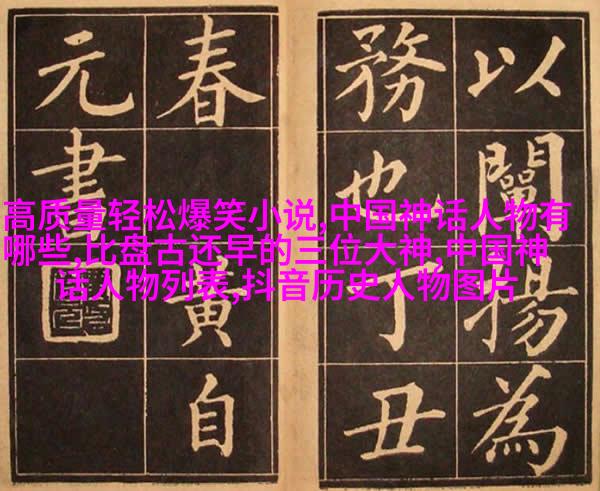 以闡揚為
務也丁丑
春黃自
元書
高质量轻松爆笑小说,中国神话人物有
哪些,比盘古还早的三位大神,中国神
话人物列表,抖音历史人物图片